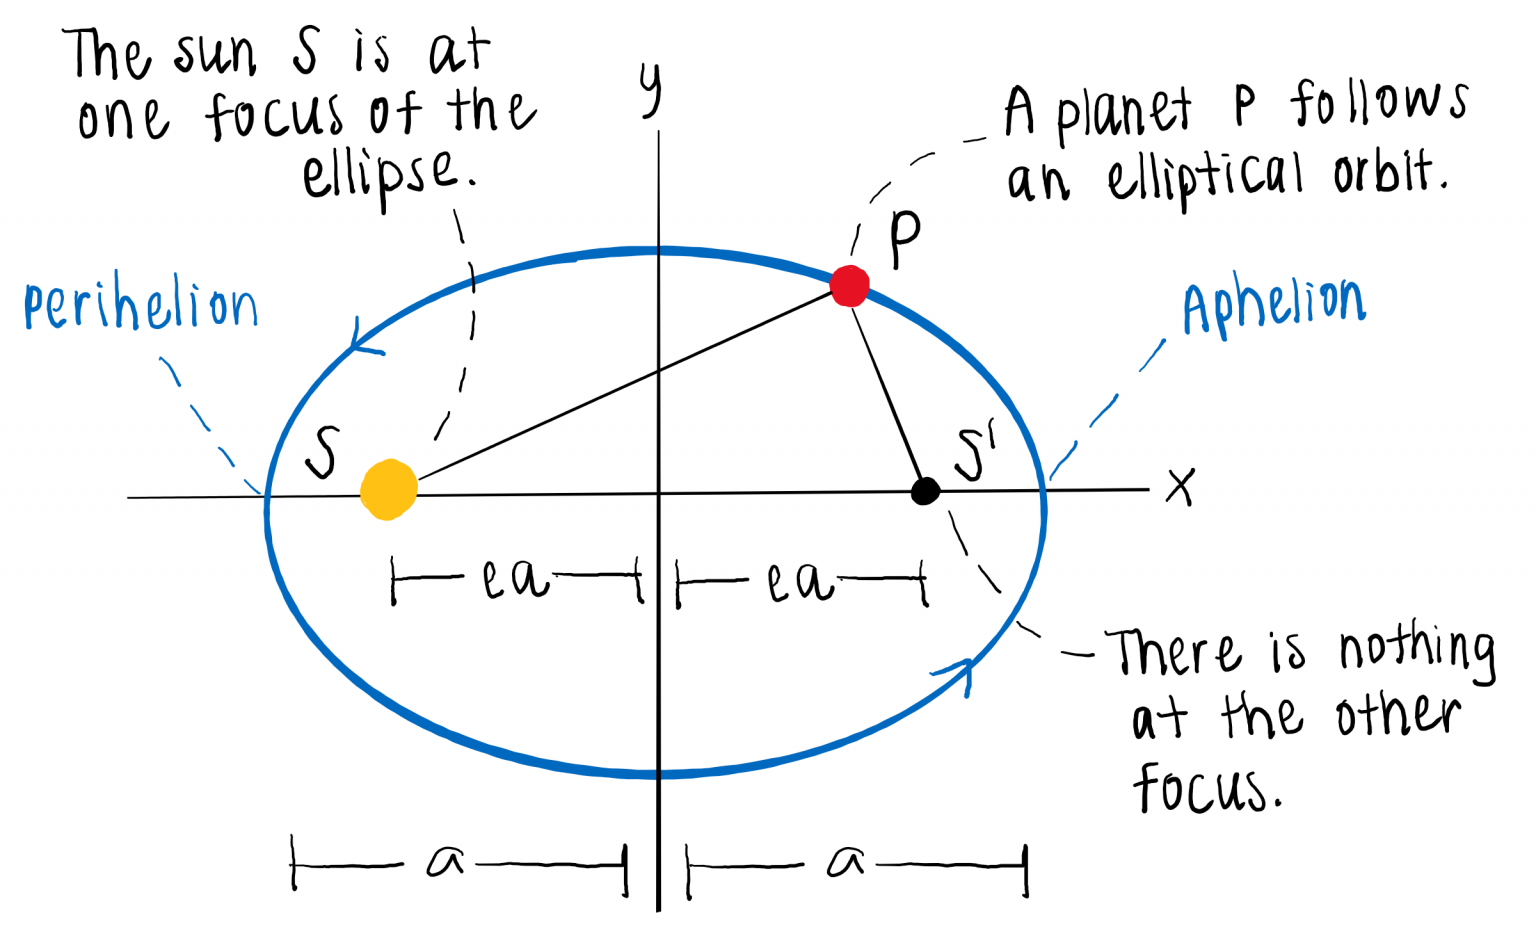 The sun S is at
one focus of the
ellipse.
y
A planet P follows
an elliptical orbit.
P
perihelion
Aphelion
S
S'
x
ea
ea
There is nothing
at the other
focus.
a
a